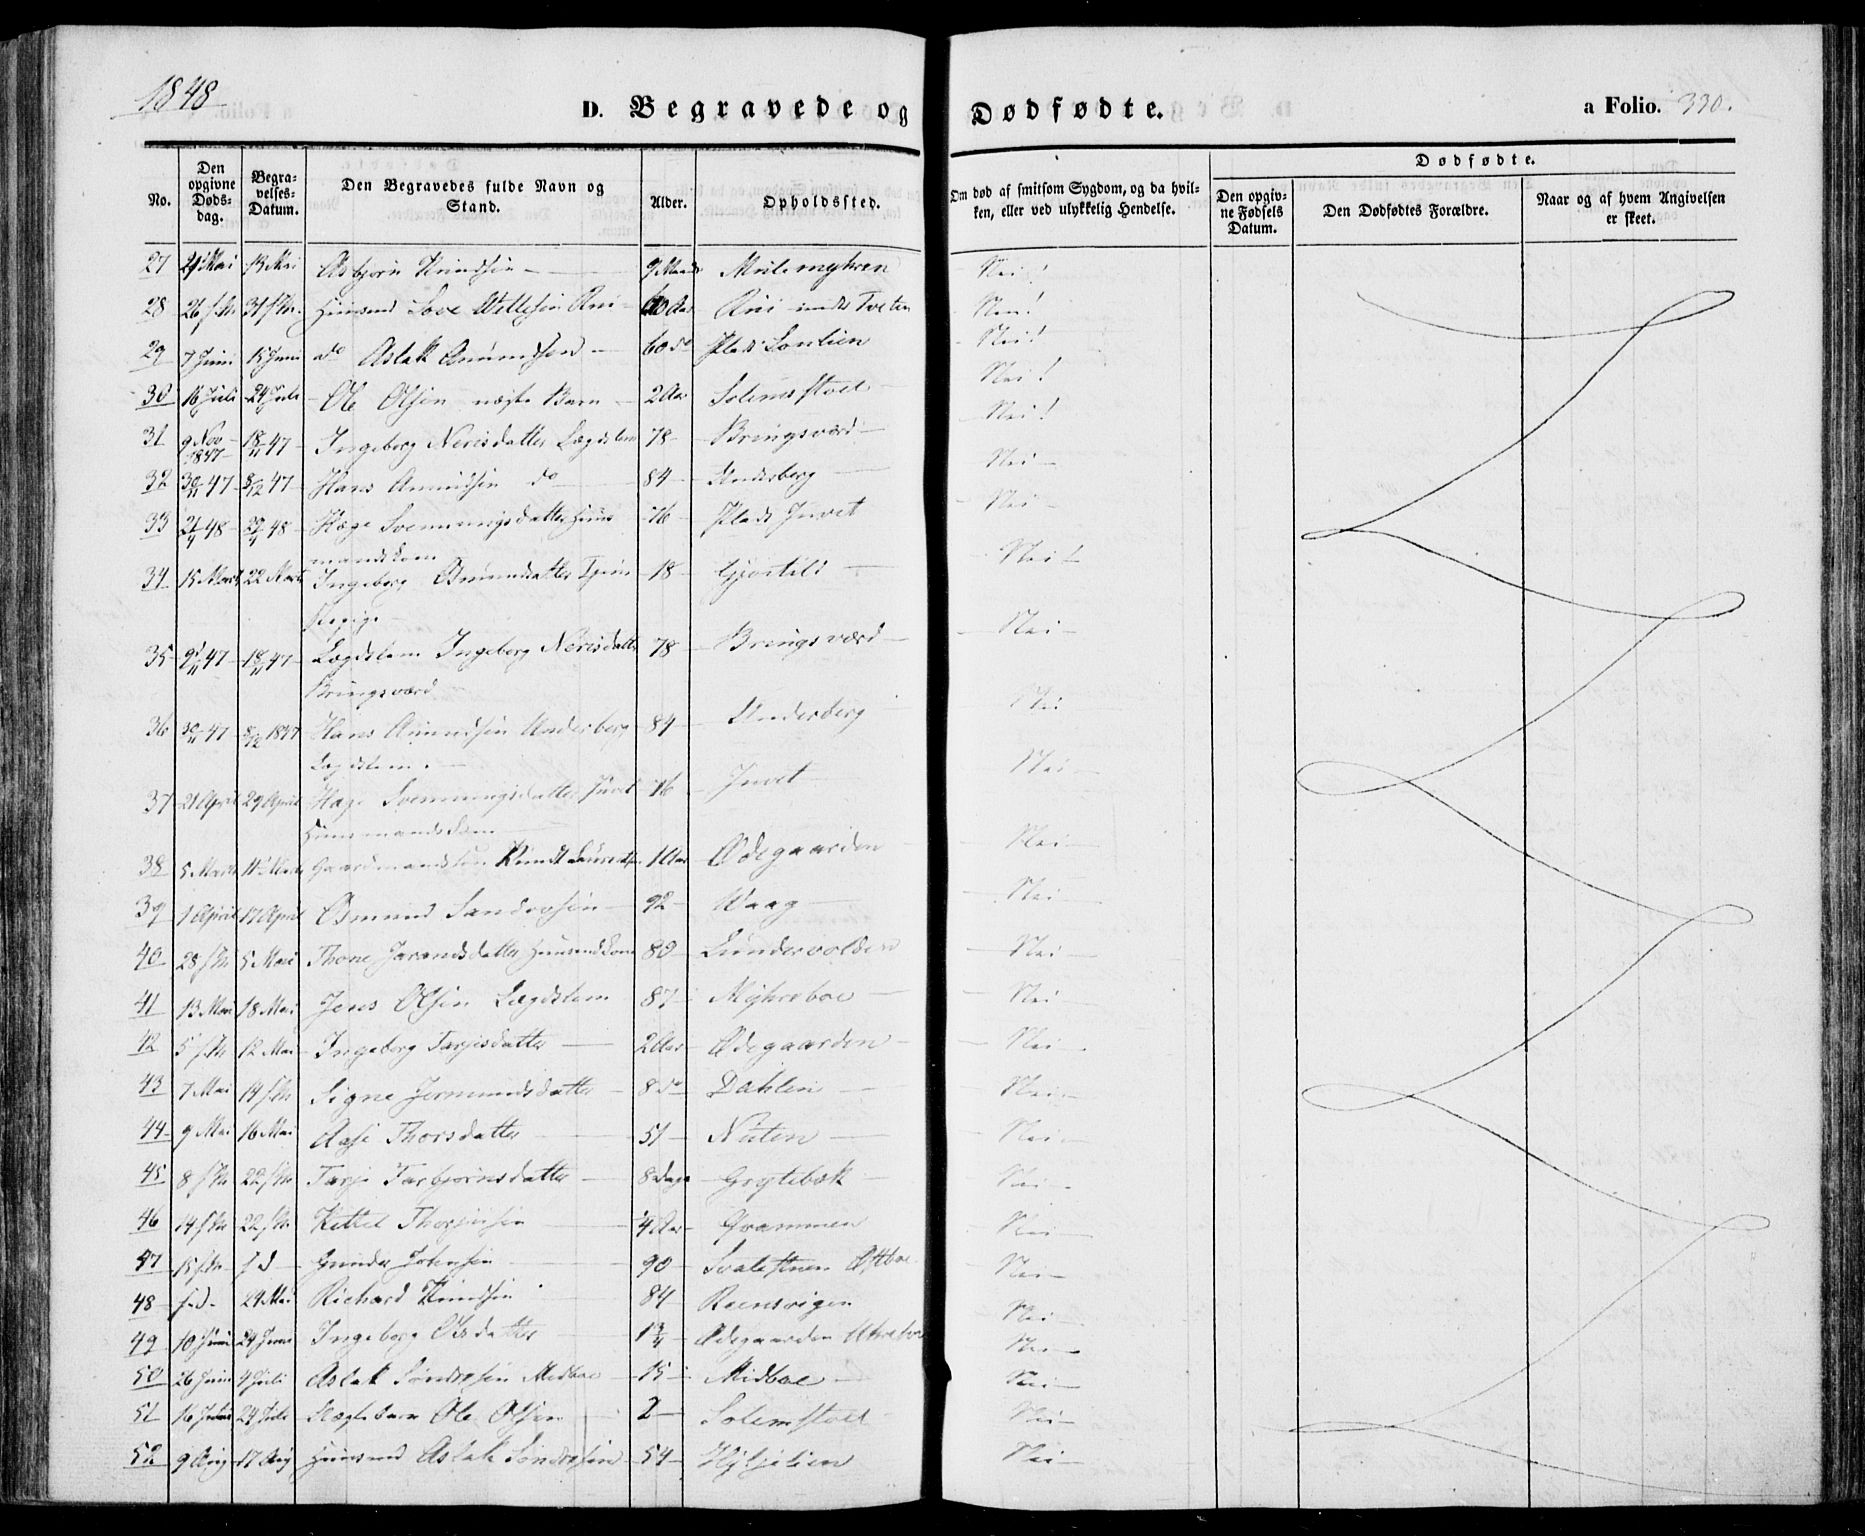 1848
D. Begravede og Dødfødte.
a Folio. 390.
No.
Den opgivne Døds-dag.
Begra-velses-Datum.
Den Begravedes fulde Navn og Stand.
Alder.
Opholdssted.
Om død af smitsom Sygdom, og da hvil-ken, eller ved ulykkelig Hendelse.
Dødfødte.
Den opgiv-ne Fødsels Datum.
Den Dødfødtes Forældre.
Naar og af hvem Angivelsen er skeet.
27 Mai 13 Mai Asbjørn Knudsen 9 Maan Mulemyhren Nei!
28 26 s.M. 31 s.M. Huusmd Sove Vettesen Rui 60 Aar Rui under Tveten Nei!
29 7 Juni 15 Juni do Aslak Amundsen 60 do Plads Lonlien Nei!
30 16 Juli 24 Juli Ole Olsen næste Barn 2 Aar Solemstoel Nei!
31 9 Nov 1847 18/11 47 Ingeborg Nerisdatter Lægdslem 78 Bringsværd Nei!
32 30/11 47 8/12 47 Hans Amundsen do 84 Underberg Nei
33 21/4 48 29/4 48 Hæge Svenningsdatter Huus 76 Plads Juvet Nei
mandskone
34 15 Marts 22 Marts Ingeborg Osmundsdatter Tjeneste 18 Gjøstild Nei!
Pige
35 9/11 47 18/11 47 Lægdslem Ingeborg Nerisdatter 78 Bringsværd Nei
Bringsværd
36 30/11 47 8/12 1847 Hans Amundsen Underberg 84 Underberg Nei
Lægdslem.
37 21 April 29 April Hæge Svenningsdatter Juvet 76 Juvet Nei
Huusmandskone
38 5 Marts Marts Gaardmandssøn Knudt 1 Aar Ødegaarden Nei
39 1 April 17 April Osmund Sandresen 92 Waag Nei
40 28 s.M. 5 Mai Thone Jorandsdatter Huusmdkone 80 Lundervolden Nei
41 13 Mai 18 Mai Jens Olsen Lægdslem 87 Myhreboe Nei
42 5 s.M. 12 Mai Ingeborg Tarjesdatter 2 Aar Ødegaarden Nei
43 7 Mai 14 s.M. Signe Jormundsdatter 8 do Dahlen Nei
44 9 Mai 16 Mai Aase Thorsdatter 51 Nuten Nei
45 8 s.M. 22 s.M. Tarje Tarbjørnsdatter 8 Dage Grytebæk Nei
46 14 s.M. 22 s.M. Kettel Thorjusen 4 Aar Grammen Nei
47 15 s.M. s.d. Gunder Johnsen 90 Svalestuen Øftboe Nei
48 s.d. 24 Mai Richard Knudsen 84 Roensvigen Nei
49 10 Juni 24 Juni Ingeborg Olsdatter 1 3/4 Ødegaarden Nei
50 26 Juni 4 Juli Aslak Søndresen Midboe 15 Midboe Nei
51 16 24 Juli Barn Ole Olsen 2 Solemstoel Nei
52 9 Aug 17 Aug Huusmd Aslak Søndresen 54 Hyljelien Nei